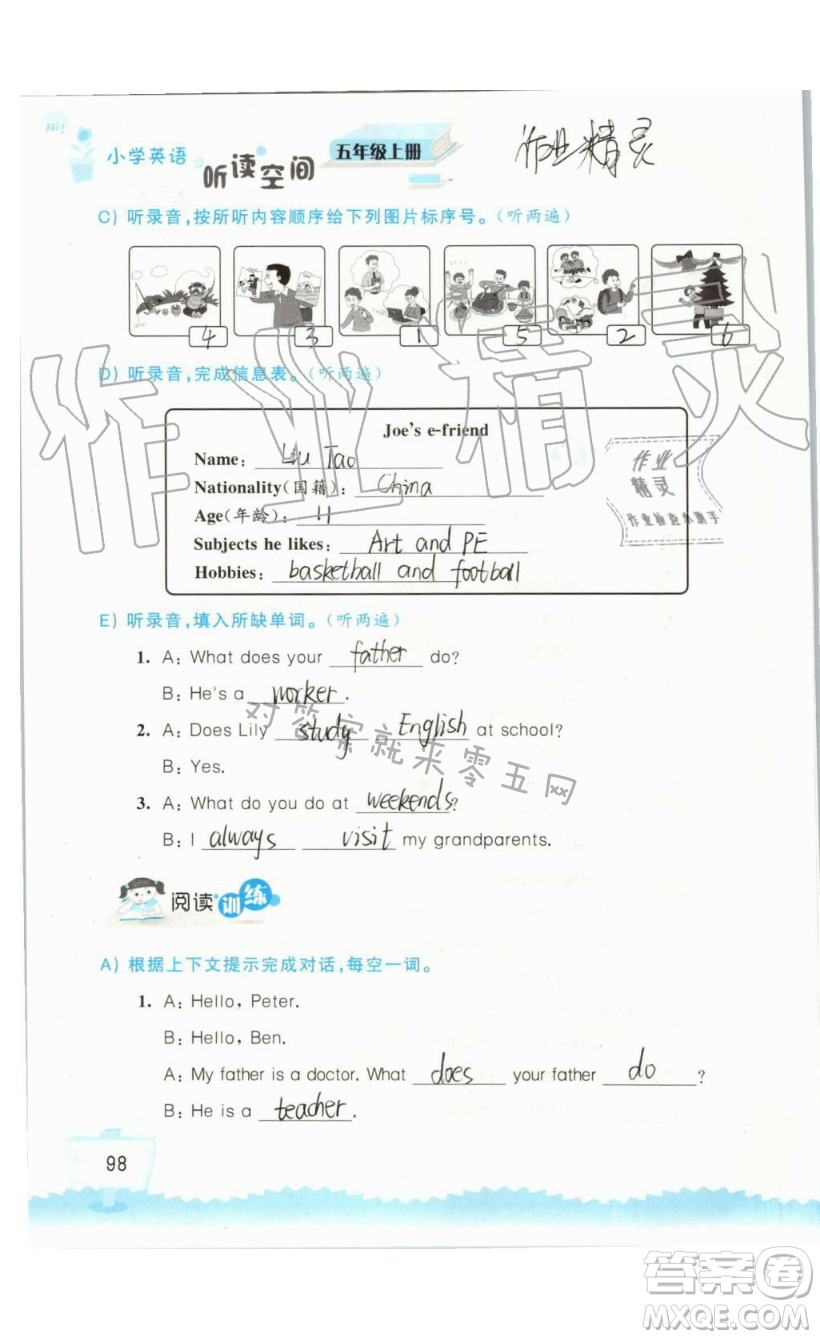 Hi!
小学英语 听读空间 五年级上册 作业精灵
C) 听录音,按所听内容顺序给下列图片标序号。(听两遍)
4 3 1 5 2 6
D) 听录音,完成信息表。(听两遍)
Joe's e-friend
Name: Liu Tao
Nationality(国籍): China
Age(年龄): 11
Subjects he likes: Art and PE
Hobbies: basketball and football
作业
精灵
作业检查小助手
作业精灵
E) 听录音,填入所缺单词。(听两遍)
1. A: What does your father do?
B: He's a worker.
2. A: Does Lily study English at school?
B: Yes.
对答案就来零五网
3. A: What do you do at weekends?
B: I always visit my grandparents.
阅读训练
A) 根据上下文提示完成对话,每空一词。
1. A: Hello, Peter.
B: Hello, Ben.
A: My father is a doctor. What does your father do ?
B: He is a teacher.
98
答案卷
MXQE.COM